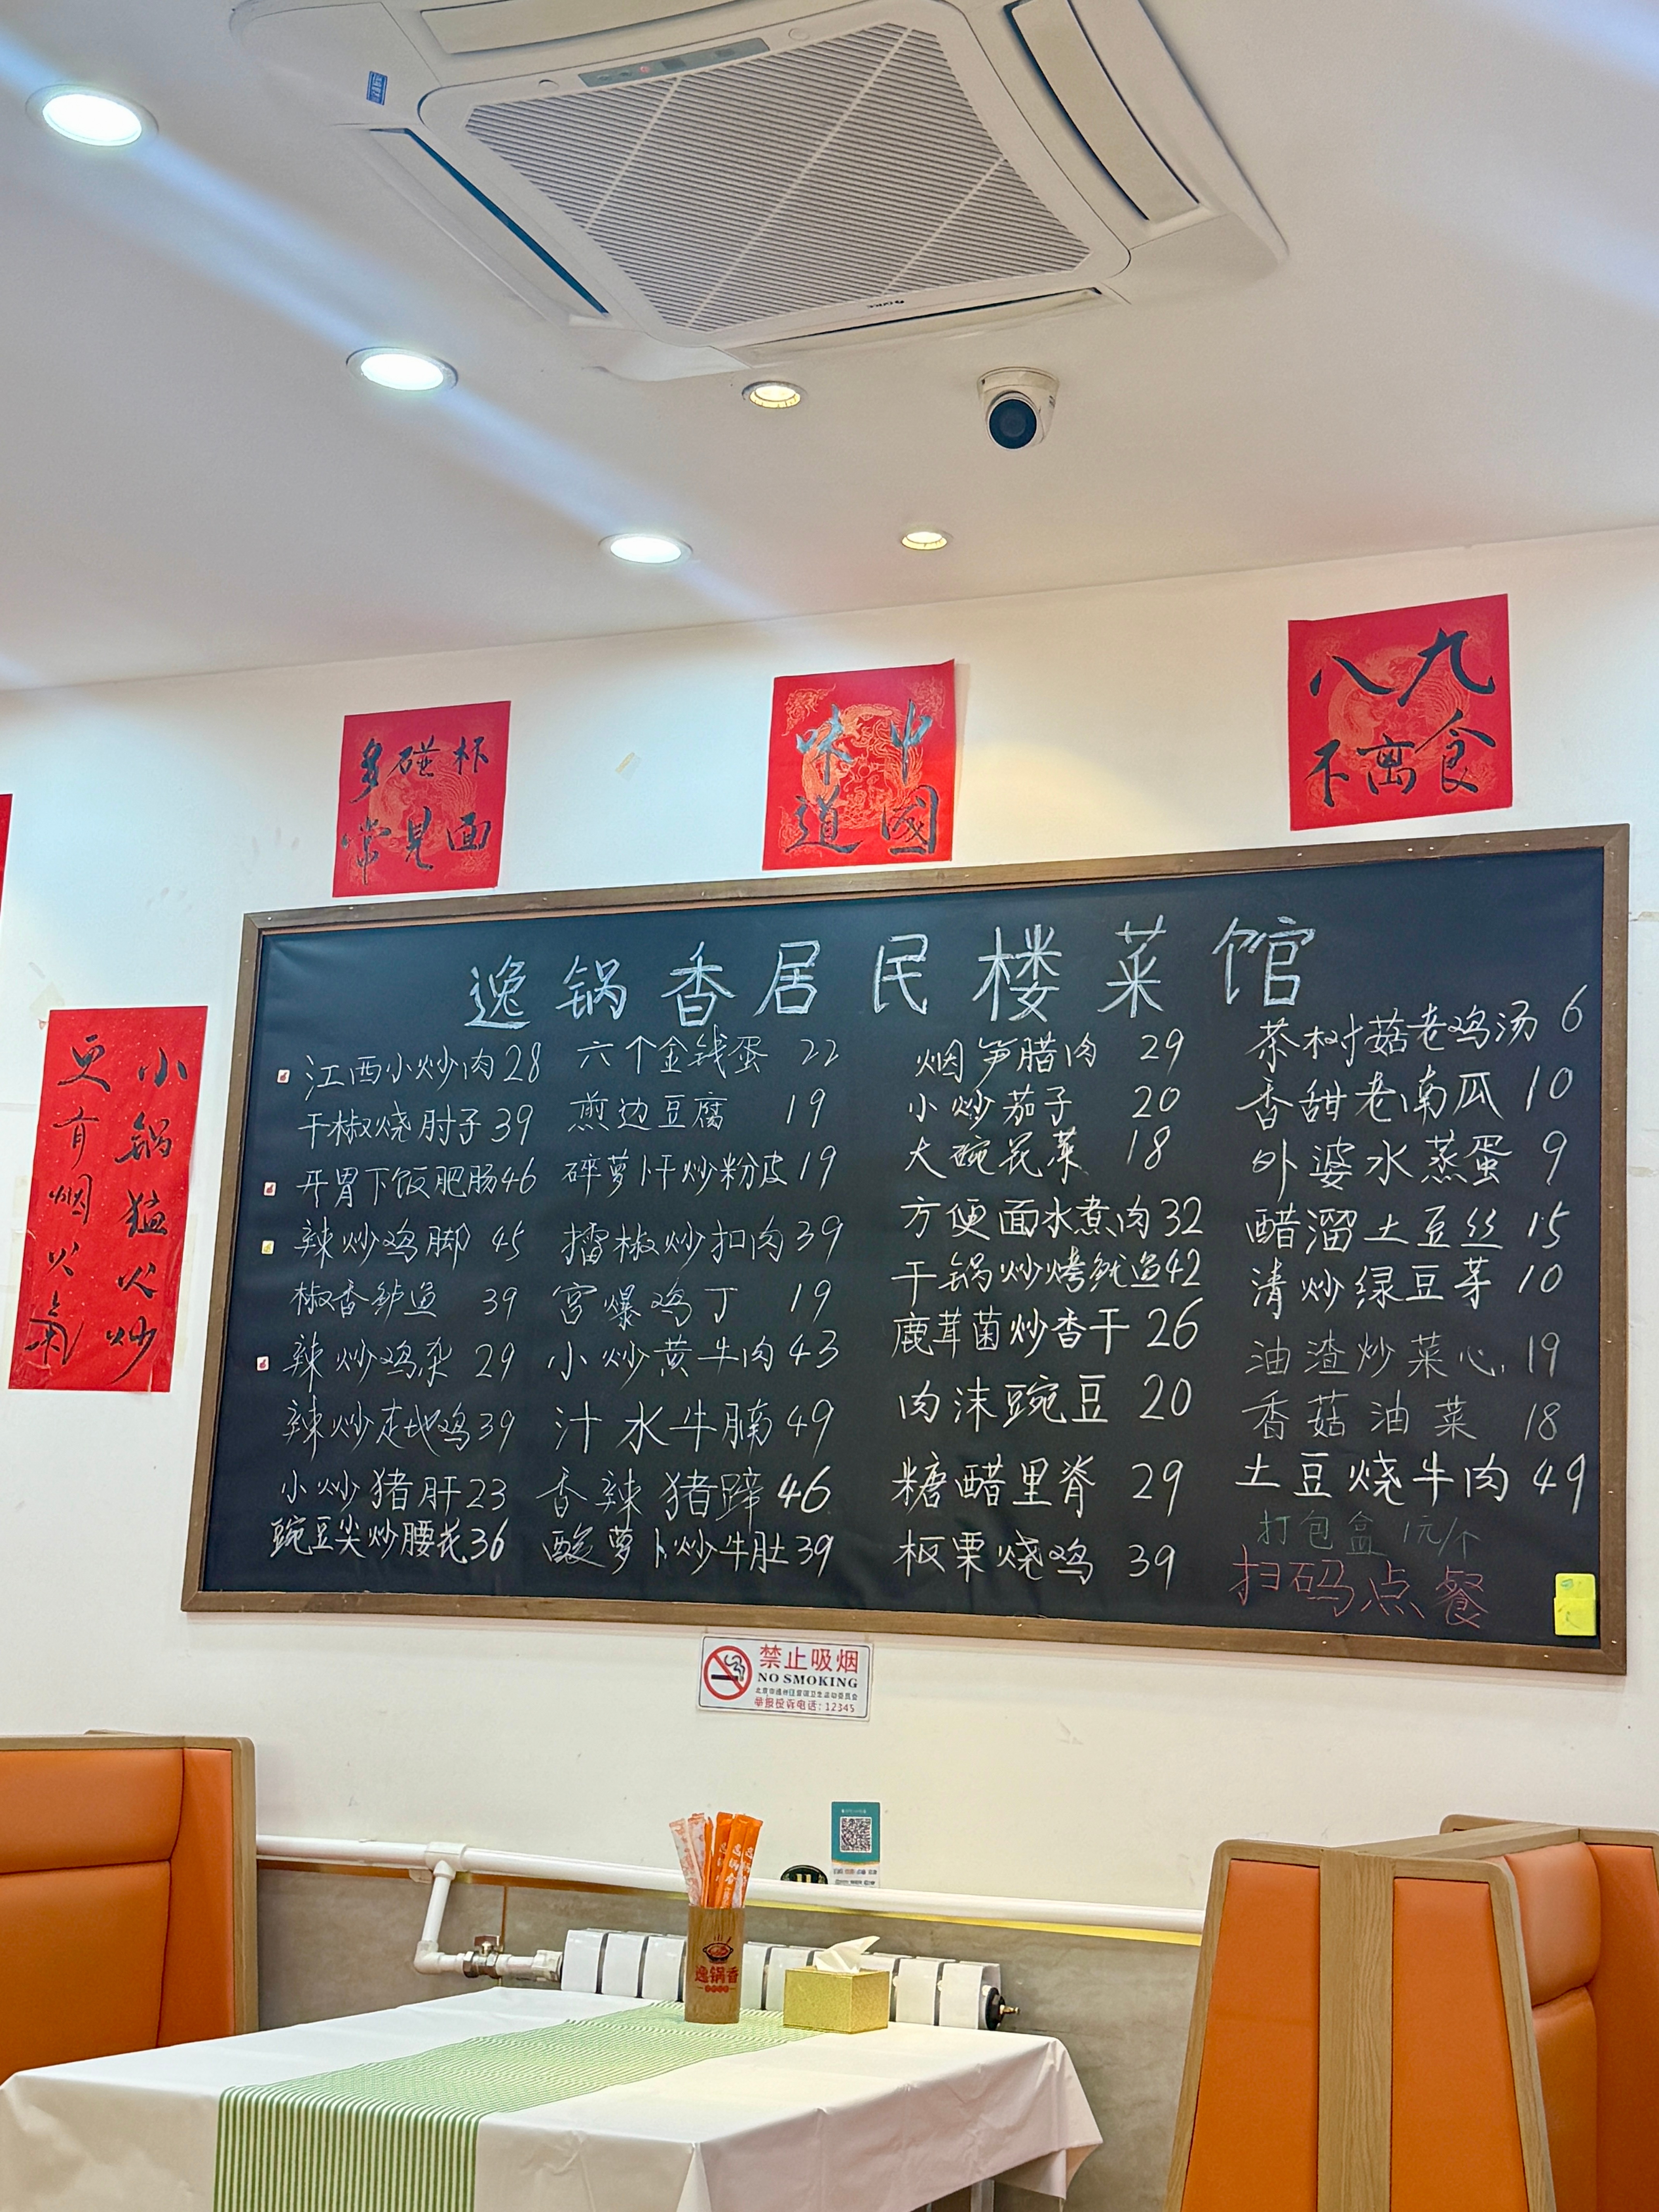 多碰杯
常见面
中國
味道
八九
不离食
小锅猛火炒
更有烟火氣
逸锅香居民楼菜馆
江西小炒肉 28
干椒烧肘子 39
开胃下饭肥肠 46
辣炒鸡脚 45
椒香鲈鱼 39
辣炒鸡杂 29
辣炒走地鸡 39
小炒猪肝 23
豌豆尖炒腰花 36
六个金钱蛋 22
煎边豆腐 19
碎萝卜干炒粉皮 19
擂椒炒扣肉 39
宫爆鸡丁 19
小炒黄牛肉 43
汁水牛腩 49
香辣猪蹄 46
酸萝卜炒牛肚 39
烟笋腊肉 29
小炒茄子 20
大碗花菜 18
方便面水煮肉 32
干锅炒烤鱿鱼 42
鹿茸菌炒香干 26
肉沫豌豆 20
糖醋里脊 29
板栗烧鸡 39
茶树菇老鸡汤 6
香甜老南瓜 10
外婆水蒸蛋 9
醋溜土豆丝 15
清炒绿豆芽 10
油渣炒菜心 19
香菇油菜 18
土豆烧牛肉 49
打包盒 1元/个
扫码点餐
禁止吸烟
NO SMOKING
北京市通州区爱国卫生运动委员会
举报投诉电话：12345
逸锅香